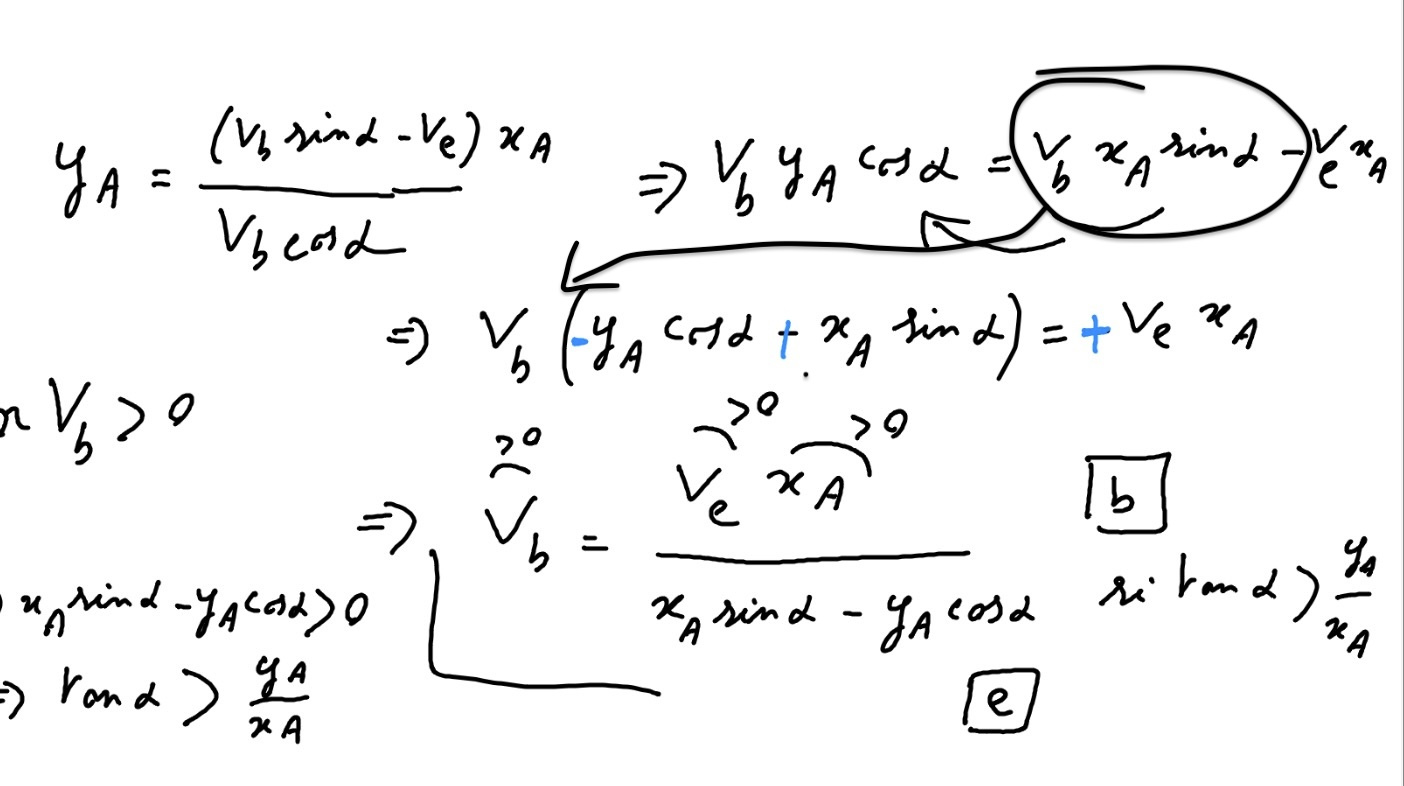 y_A = (V_b sin α - V_e) x_A / V_b cos α ⇒ V_b y_A cos α = V_b x_A sin α - V_e x_A
⇒ V_b (-y_A cos α + x_A sin α) = + V_e x_A
V_b > 0
>0 >0 >0
⇒ V_b = V_e x_A / x_A sin α - y_A cos α
b
si tan α > y_A / x_A
x_A sin α - y_A cos α > 0
⇒ tan α > y_A / x_A
e